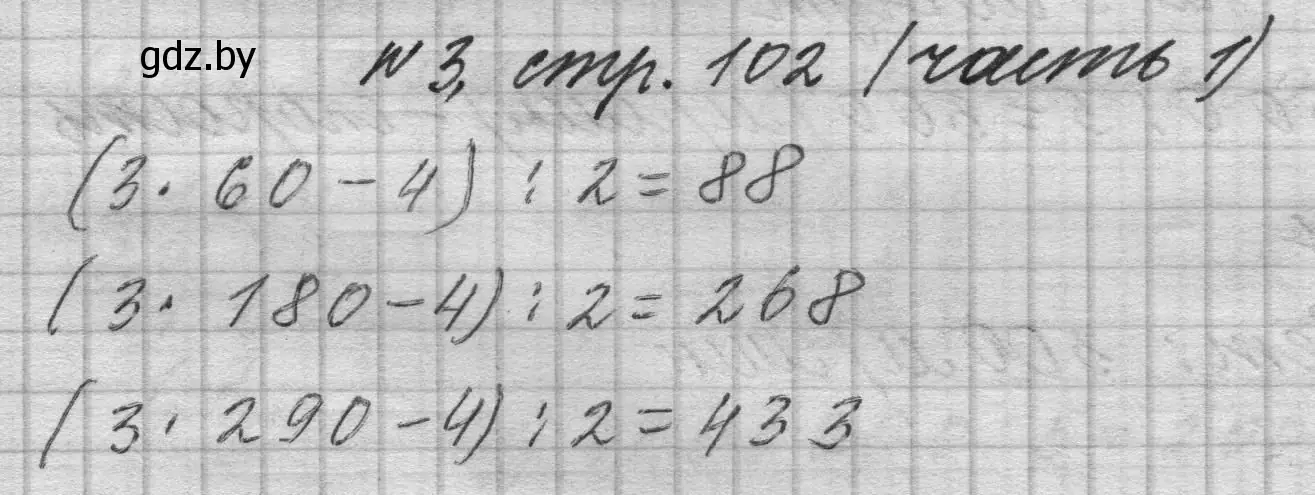 gdz.by
№ 3, стр. 102 (часть 1)
(3 · 60 - 4) : 2 = 88
(3 · 180 - 4) : 2 = 268
(3 · 290 - 4) : 2 = 433